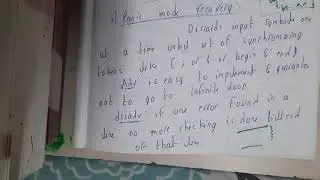 Panic mode recovery
Discards input symbols one
at a time until set of synchronizing
tokens like ( ; or } or begin & end)
Adv is easy to implement & guarantee
not to go to infinite loop
disadv if one error found in a
line no more checking is done till end
of that line